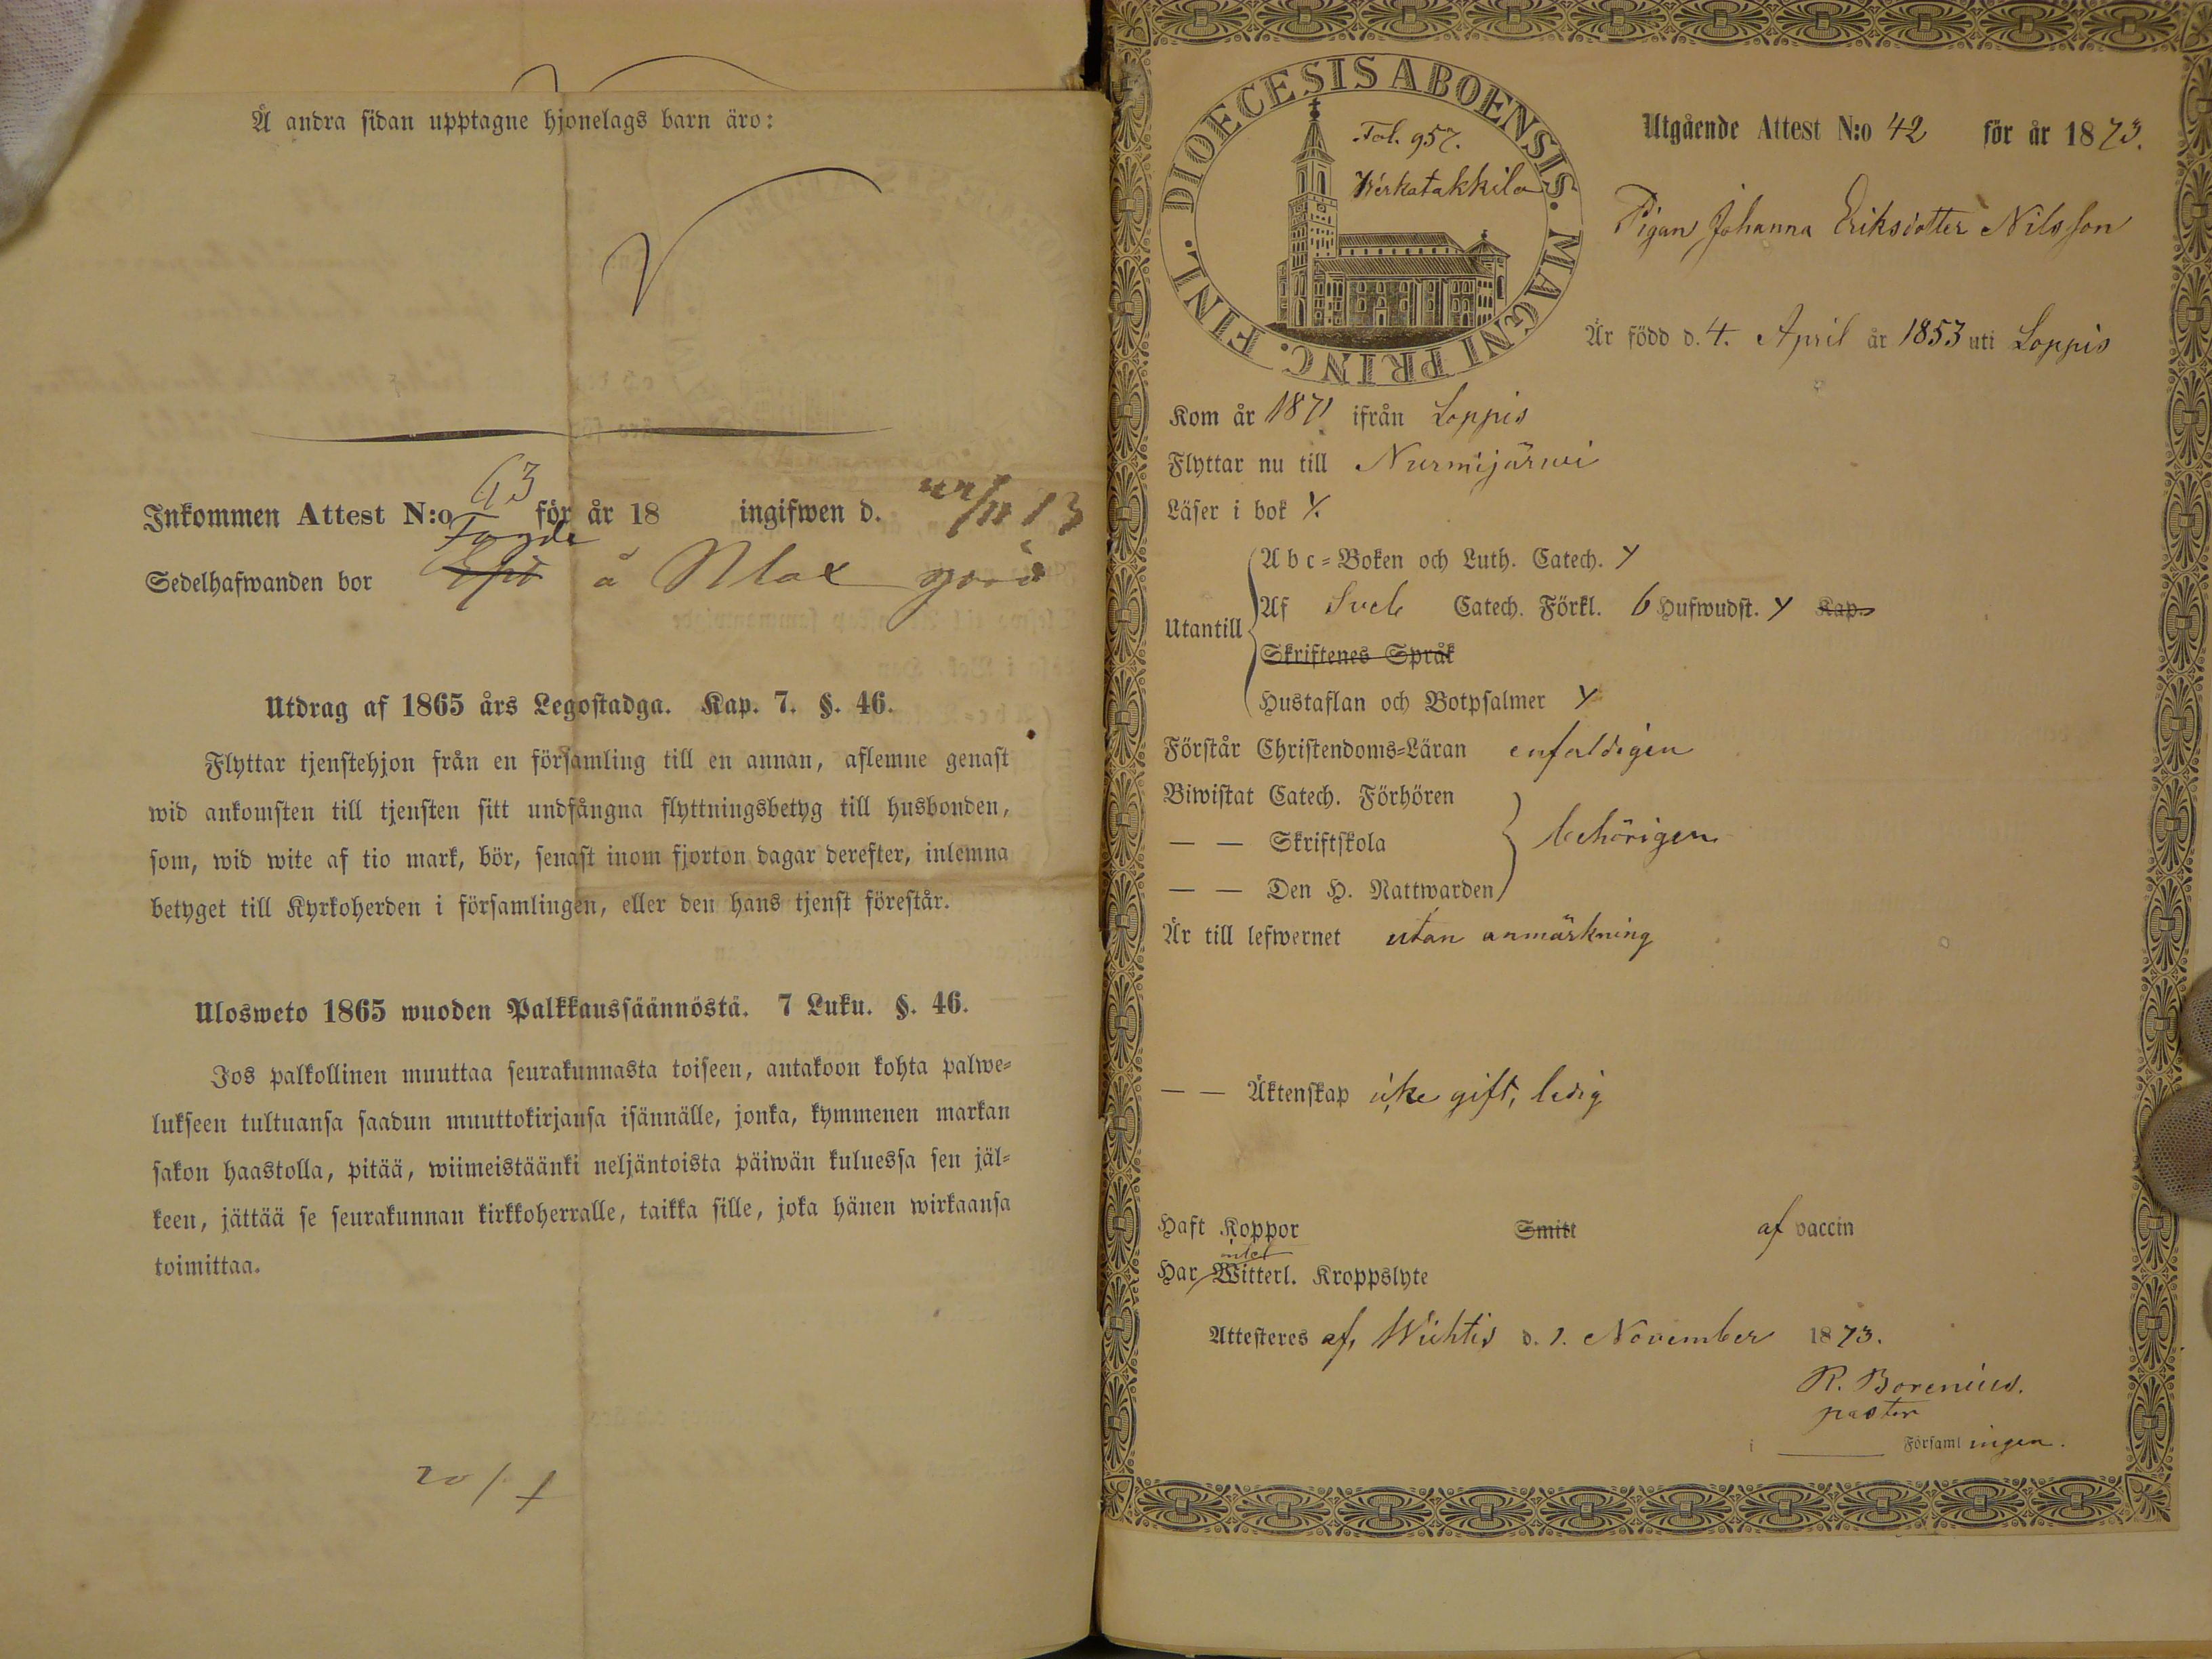 Å andra sidan upptagne hjonelags barn äro:
Inkommen Attest N:o 63 för år 18 ingifwen d.
Sedelhafwanden bor å
Utdrag af 1865 års Legostadga. Kap. 7. §. 46.
Flyttar tjenstehjon från en församling till en annan, aflemne genast
wid ankomsten till tjensten sitt undfångna flyttningsbetyg till husbonden,
som, wid wite af tio mark, bör, senast inom fjorton dagar derefter, inlemna
betyget till Kyrkoherden i församlingen, eller den hans tjenst förestår.
Ulosweto 1865 wuoden Palkkaussäännöstä. 7 Luku. §. 46.
Jos palkollinen muuttaa seurakunnasta toiseen, antakoon kohta palwe=
lukseen tultuansa saadun muuttokirjansa isännälle, jonka, kymmenen markan
sakon haastolla, pitää, wiimeistäänki neljäntoista päiwän kuluessa sen jäl=
keen, jättää se seurakunnan kirkkoherralle, taikka sille, joka hänen wirkaansa
toimittaa.
DIOECESIS ABOENSIS. MAGNI PRINC. FINL.
Fol. 957.
Wérkatakkila
Utgående Attest N:o 42 för år 1873.
Pigan Johanna Eriksdotter Nilsson
Är född d. 4. April år 1853 uti Loppis
Kom år 1871 ifrån Loppis
Flyttar nu till Nurmijärwi
Läser i bok Y.
Utantill
A b c = Boken och Luth. Catech. Y
Af Sveb Catech. Förkl. 6 Hufwudst. Y Kap.
Skriftenes Språk
Hustaflan och Botpsalmer Y
Förstår Christendoms=Läran enfaldigen
Biwistat Catech. Förhören
— — Skriftskola behörigen
— — Den H. Nattwarden
Är till lefwernet utan anmärkning
— — Äktenskap icke gift, ledig
Haft Koppor Smitt af vaccin
Har intet Witterl. Kroppslyte
Attesteres af, Wichtis d. 1. November 1873.
R. Borenius.
pastor
i Församlingen.